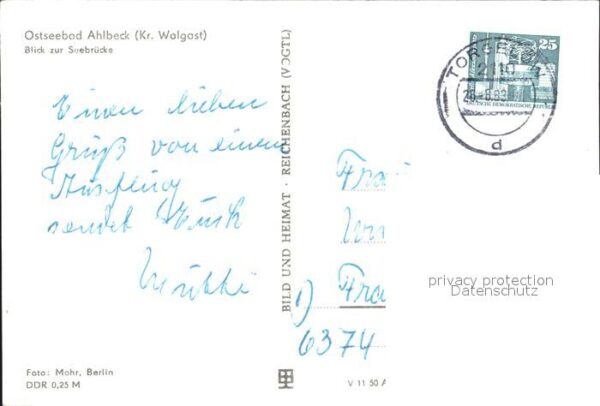 Ostseebad Ahlbeck (Kr. Wolgast)
Blick zur Seebrücke
Einen lieben
Gruß von einem
Ausflug
sendet Euch
Mutti
Foto: Mohr, Berlin
DDR 0,25 M
BILD UND HEIMAT · REICHENBACH (VOGTL)
V 11 50 A
25
DEUTSCHE DEMOKRATISCHE REPUBLIK
TORGELOW
2110
d
Fra
Fra
1)
6374
privacy protection
Datenschutz